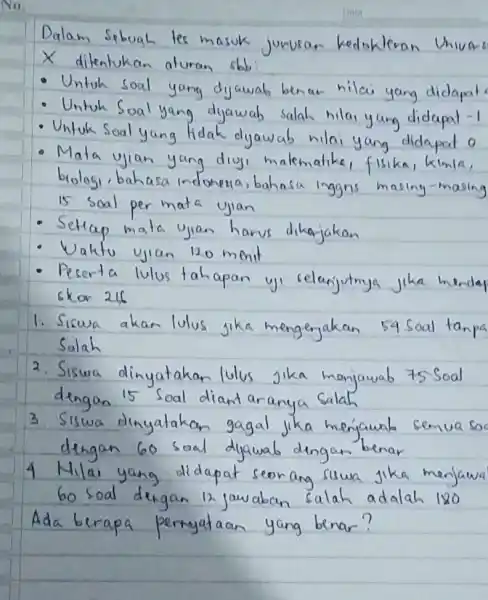 No.
Date
Dalam Sebuah tes masuk jurusan kedokteran Univers
X ditentukan aturan sbb:
• Untuk soal yang dijawab benar nilai yang didapat
• Untuk Soal yang dijawab salah nilai yang didapat -1
• Untuk Soal yang tidak dijawab nilai yang didapat 0
• Mata ujian yang diuji matematika, fisika, kimia,
biologi, bahasa indonesia, bahasa inggris masing-masing
15 soal per mata ujian
• Setiap mata ujian harus dikerjakan
• Waktu ujian 120 menit
• Peserta lulus tahapan uji selanjutnya jika mendap
skor 216
1. Siswa akan lulus jika mengerjakan 54 Soal tanpa
Salah
2. Siswa dinyatakan lulus jika menjawab 75 Soal
dengan 15 Soal diantaranya Salah
3 Siswa dinyatakan gagal jika menjawab semua so
dengan 60 soal dijawab dengan benar
4 Nilai yang didapat seorang siswa jika menjawa
60 soal dengan 12 jawaban Salah adalah 180
Ada berapa pernyataan yang benar?